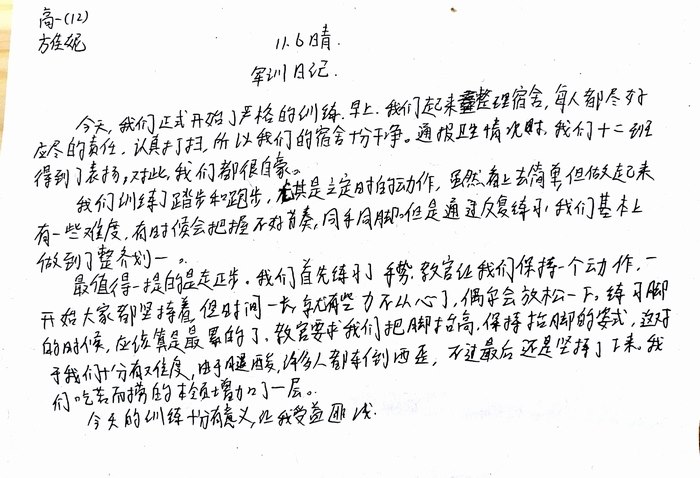 高一(12)
方佳妮
11.6 晴.
军训日记.
今天,我们正式开始了严格的训练.早上.我们起来整理宿舍,每人都尽好
应尽的责任.认真打扫,所以我们的宿舍十分干净。通报卫生情况时.我们十二班
得到了表扬,对此,我们都很自豪。
我们训练了踏步和跑步,尤其是立定时的动作,虽然看上去简单,但做起来
有一些难度,有时候会把握不好节奏,同手同脚。但是通过反复练习,我们基本上
做到了整齐划一。
最值得一提的是走正步.我们首先练习了手势.教官让我们保持一个动作,一
开始大家都坚持着,但时间一长就有些力不从心了,偶尔会放松一下。练习脚
的时候,应该算是最累的了.教官要求我们把脚抬高,保持抬脚的姿式,这对
于我们十分有难度,由于腿酸,许多人都东倒西歪,不过最后还是坚持了下来.我
们吃苦而捞的本领增加了一层。
今天的训练十分有意义,让我受益匪浅.